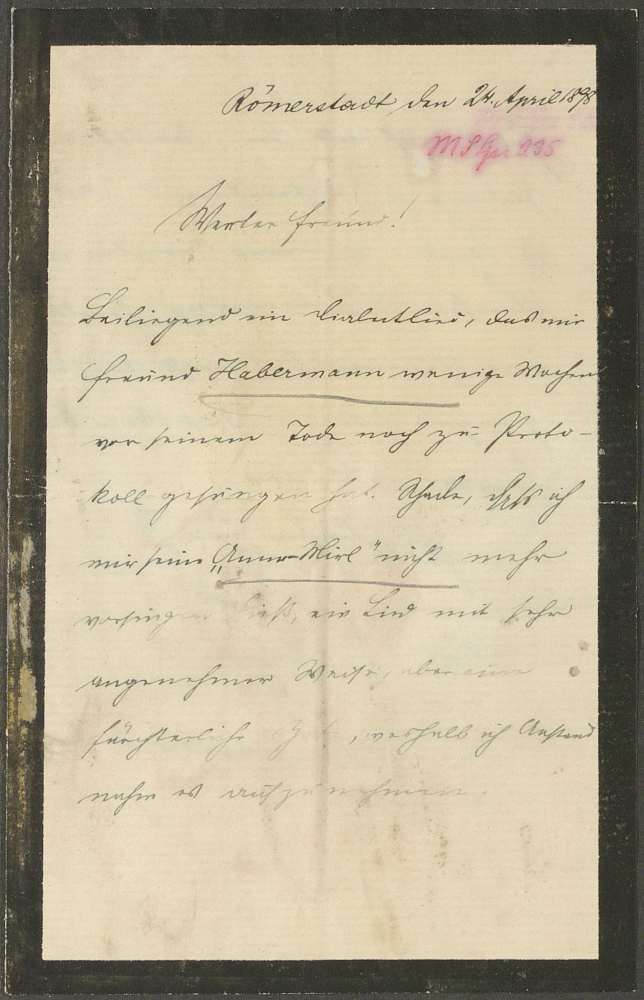 Römerstadt den 24. April 1898
Werter Freund!
Beiliegend ein Dialectlied, das mir
Freund Habermann wenige Wochen
vor seinem Tode noch zu Proto-
koll gesungen hat. Schade, daß ich
mir seine „Anna-Mirl" nicht mehr
vorsingen ließ, ein Lied mit sehr
angenehmer Weise, aber eine
fürchterliche, weshalb ich Anstand
nahm es aufzunehmen.